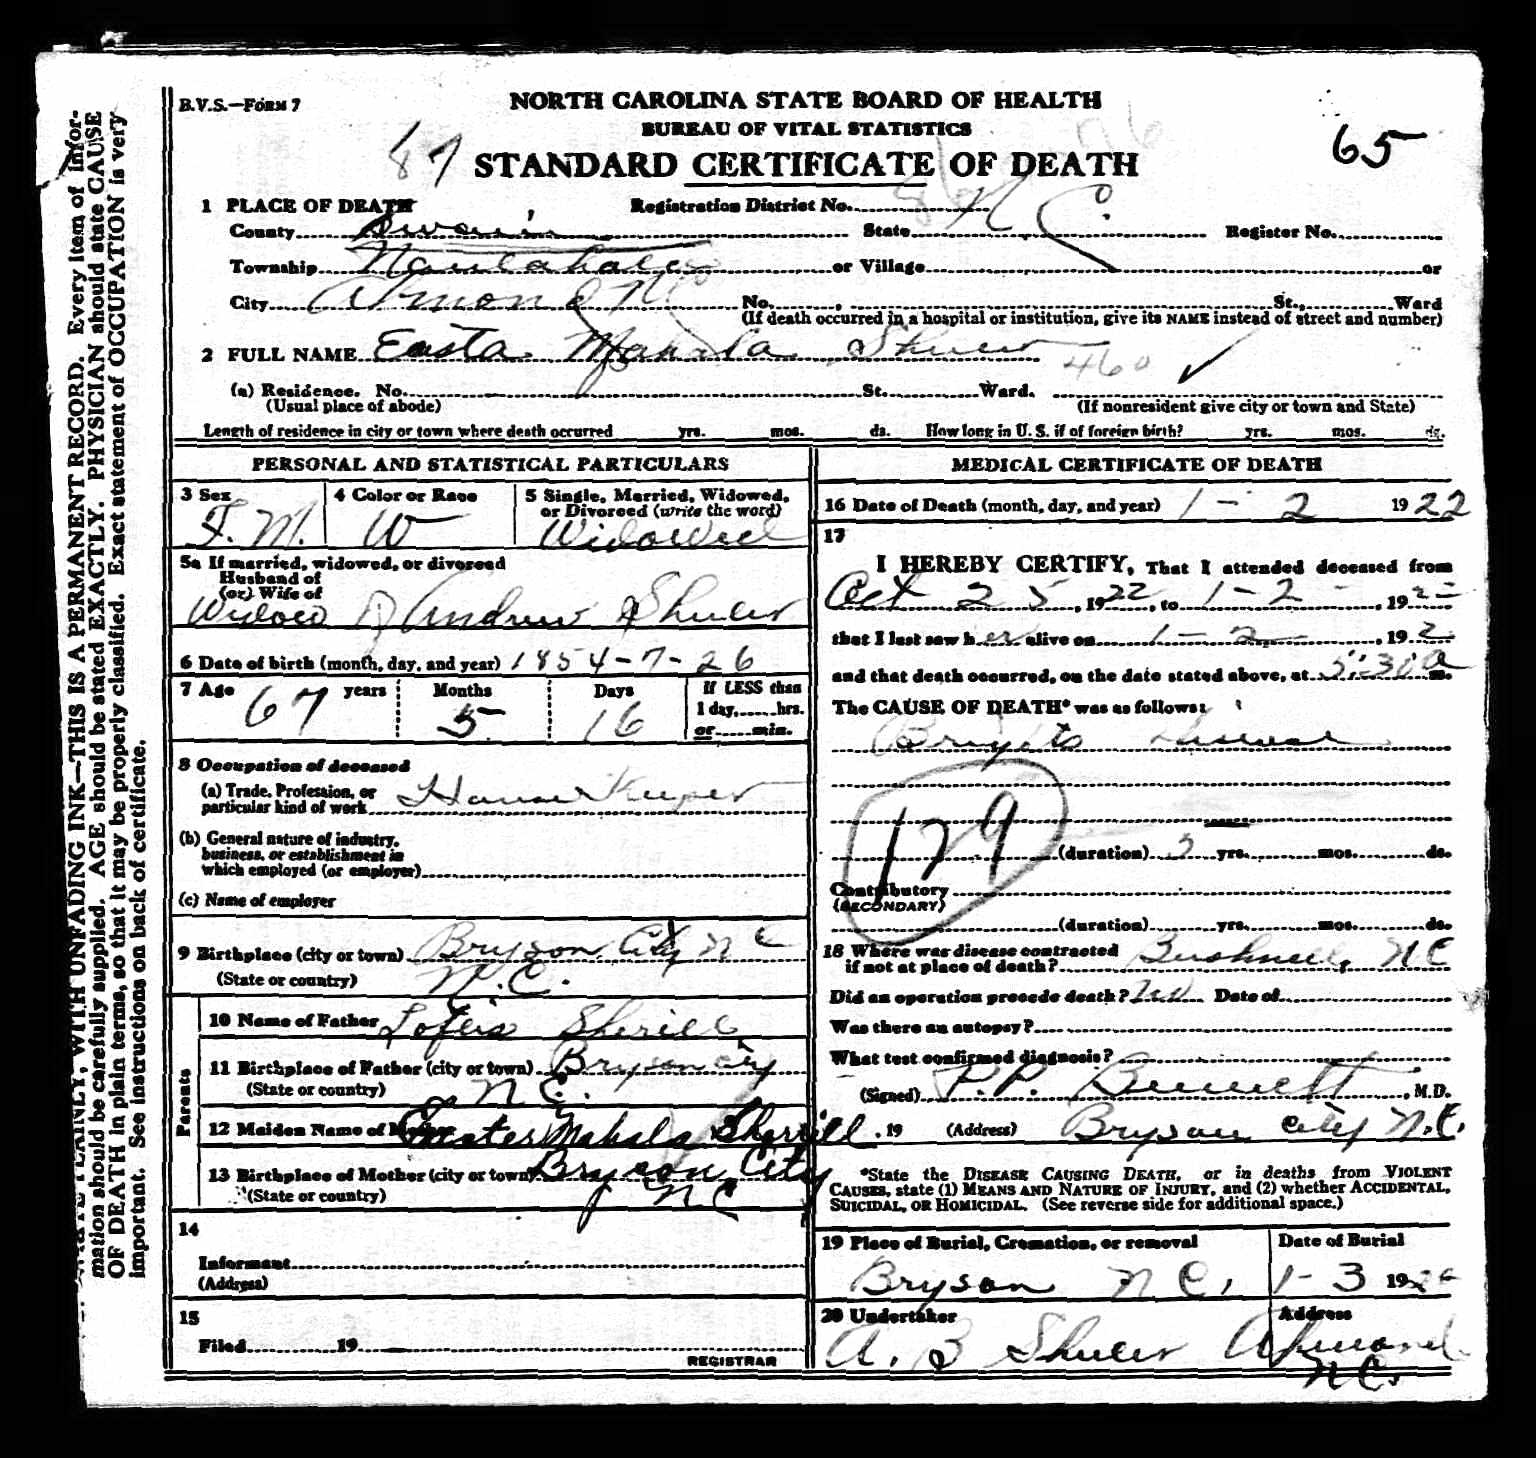 B.V.S.—Form 7
NORTH CAROLINA STATE BOARD OF HEALTH
BUREAU OF VITAL STATISTICS
87 STANDARD CERTIFICATE OF DEATH 65
1 PLACE OF DEATH Registration District No.
County Swain State N C. Register No.
Township Nantahala or Village or
City Almond N C No. , St., Ward
(If death occurred in a hospital or institution, give its NAME instead of street and number)
2 FULL NAME Easta Mahala Shuler
460
(a) Residence. No. St. Ward.
(Usual place of abode) (If nonresident give city or town and State)
Length of residence in city or town where death occurred yrs. mos. ds. How long in U. S. if of foreign birth? yrs. mos. ds.
PERSONAL AND STATISTICAL PARTICULARS
3 Sex 4 Color or Race 5 Single, Married, Widowed,
or Divorced (write the word)
F. M. W Widowed
5a If married, widowed, or divorced
Husband of
(or) Wife of
Widow of Andrew Shuler
6 Date of birth (month, day, and year) 1854-7-26
7 Age 67 years Months 5 Days 16 If LESS than
1 day, hrs.
or min.
8 Occupation of deceased
(a) Trade, Profession, or
particular kind of work House Keeper
(b) General nature of industry,
business, or establishment in
which employed (or employer)
(c) Name of employer
9 Birthplace (city or town) Bryson City N C
(State or country) N.C.
Parents
10 Name of Father Sherill
11 Birthplace of Father (city or town) Bryson City
(State or country) N C.
12 Maiden Name of Mother Mahala Sherrill
13 Birthplace of Mother (city or town) Bryson City
(State or country) N C
14
Informant
(Address)
15
Filed 19
REGISTRAR
MEDICAL CERTIFICATE OF DEATH
16 Date of Death (month, day, and year) 1 - 2 1922
17
I HEREBY CERTIFY, That I attended deceased from
Oct 25, 1922, to 1-2-, 1922
that I last saw her alive on 1-2-, 192
and that death occurred, on the date stated above, at 5:30 a m.
The CAUSE OF DEATH* was as follows:
Brights
129
(duration) yrs. mos. ds.
Contributory
(SECONDARY)
(duration) yrs. mos. ds.
18 Where was disease contracted
if not at place of death? Bushnell, N C
Did an operation precede death? no Date of
Was there an autopsy?
What test confirmed diagnosis?
(Signed) P.P. Bennett, M.D.
, 19 (Address) Bryson City N.C.
*State the DISEASE CAUSING DEATH, or in deaths from VIOLENT
CAUSES, state (1) MEANS AND NATURE OF INJURY, and (2) whether ACCIDENTAL,
SUICIDAL, OR HOMICIDAL. (See reverse side for additional space.)
19 Place of Burial, Cremation, or removal Date of Burial
Bryson N C, 1-3 19
20 Undertaker Address
A. B Shuler Almond
N C.
WRITE PLAINLY, WITH UNFADING INK—THIS IS A PERMANENT RECORD. Every item of infor-
mation should be carefully supplied. AGE should be stated EXACTLY. PHYSICIAN should state CAUSE
OF DEATH in plain terms, so that it may be properly classified. Exact statement of OCCUPATION is very
important. See instructions on back of certificate.